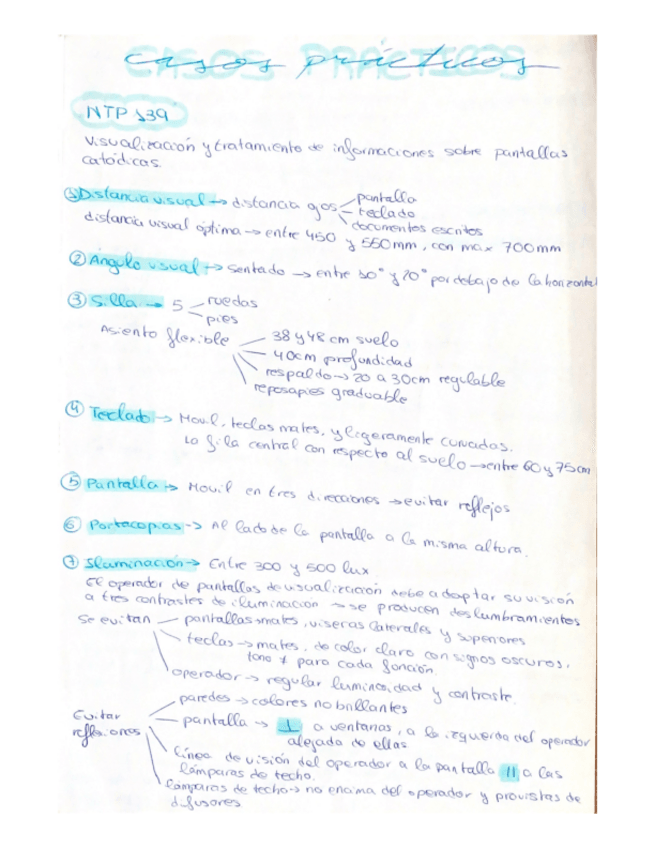 casos prácticos
NTP 139
Visualización y tratamiento de informaciones sobre pantallas
catódicas.
① Distancia visual → distancia ojos pantalla
teclado
documentos escritos
distancia visual óptima → entre 450 y 550mm, con max 700mm
② Ángulo visual → sentado → entre 10° y 20° por debajo de la horizontal
③ Silla → 5 ruedas
pies
Asiento flexible 38 y 48 cm suelo
40cm profundidad
respaldo → 20 a 30cm regulable
reposapies graduable
④ Teclado → Movil, teclas mates, y ligeramente curvadas.
La fila central con respecto al suelo → entre 60 y 75cm
⑤ Pantalla → Movil en tres direcciones → evitar reflejos
⑥ Portacopias → Al lado de la pantalla a la misma altura.
⑦ Iluminación → Entre 300 y 500 lux
El operador de pantallas de visualización debe adaptar su visión
a tres contrastes de iluminacion → se producen deslumbramientos
Se evitan pantallas mates, viseras laterales y superiores
teclas → mates, de color claro con signos oscuros,
tono ≠ para cada función.
operador → regular luminosidad y contraste.
Evitar reflexiones paredes → colores no brillantes
pantalla → ⊥ a ventanas, a la izquerda del operador
alejada de ellas
Línea de visión del operador a la pantalla || a las
lámparas de techo.
lámparas de techo → no encima del operador y provistas de
difusores